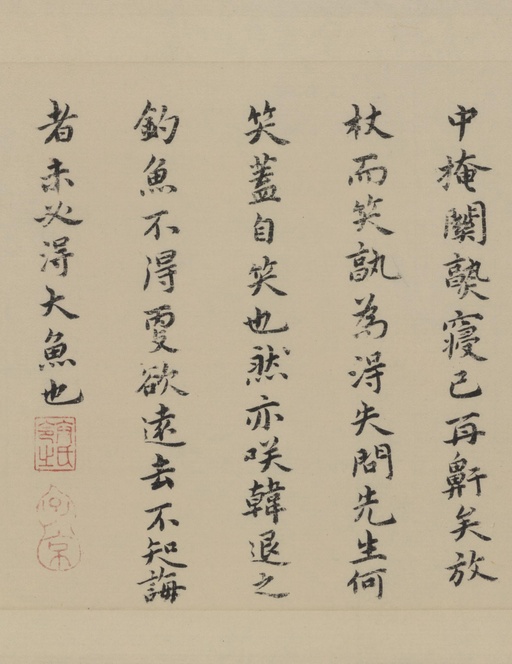 中掩關熟寢已再鼾矣放
杖而笑孰為得失問先生何
笑蓋自笑也然亦咲韓退之
釣魚不得更欲遠去不知誨
者未必得大魚也